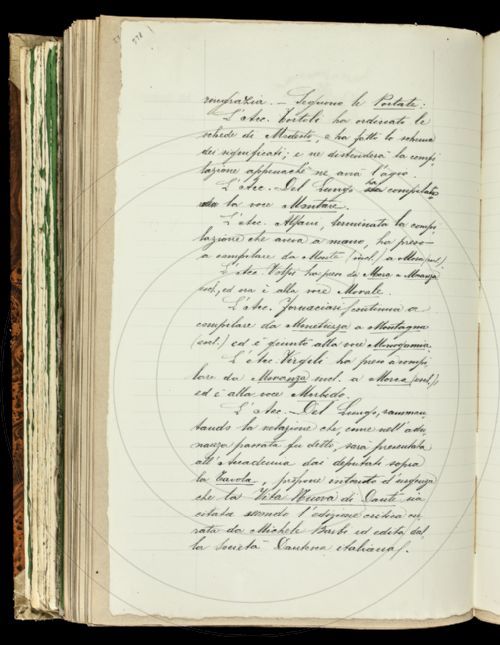 ringrazia. — Seguono le Portate:
L'Acc. Tortoli ha ordinato le
schede di Modesto, e ha fatto lo schema
dei significati; e ne distenderà la compi-
lazione appenachè ne avrà l'agio.
L'Acc. Del Lungo ha compilato
la voce Montare.
L'Acc. Alfani, terminata la compi-
lazione che aveva a mano, ha preso
a compilare da Monte (incl.) a
L'Acc. Volpi ha preso da Mora a Moranza
escl., ed ora è alla voce Morale.
L'Acc. Fornaciari continua a
compilare da Monetiezza a Montagna
(escl.) ed è giunto alla voce Monogamia.
L'Acc. Vèrgeli ha preso a compi-
lare da Moranza incl. a Morca (escl.)
ed è alla voce Morbido.
L'Acc. Del Lungo, rammen-
tando la relazione che, come nell'adu-
nanza passata fu detto, sarà presentata
all'Accademia dai deputati sopra
la Tavola, propone intanto d'urgenza
che la Vita Nuova di Dante sia
citata secondo l'edizione critica cu-
rata da Michele Barbi ed edita dal-
la Società Dantesca italiana.